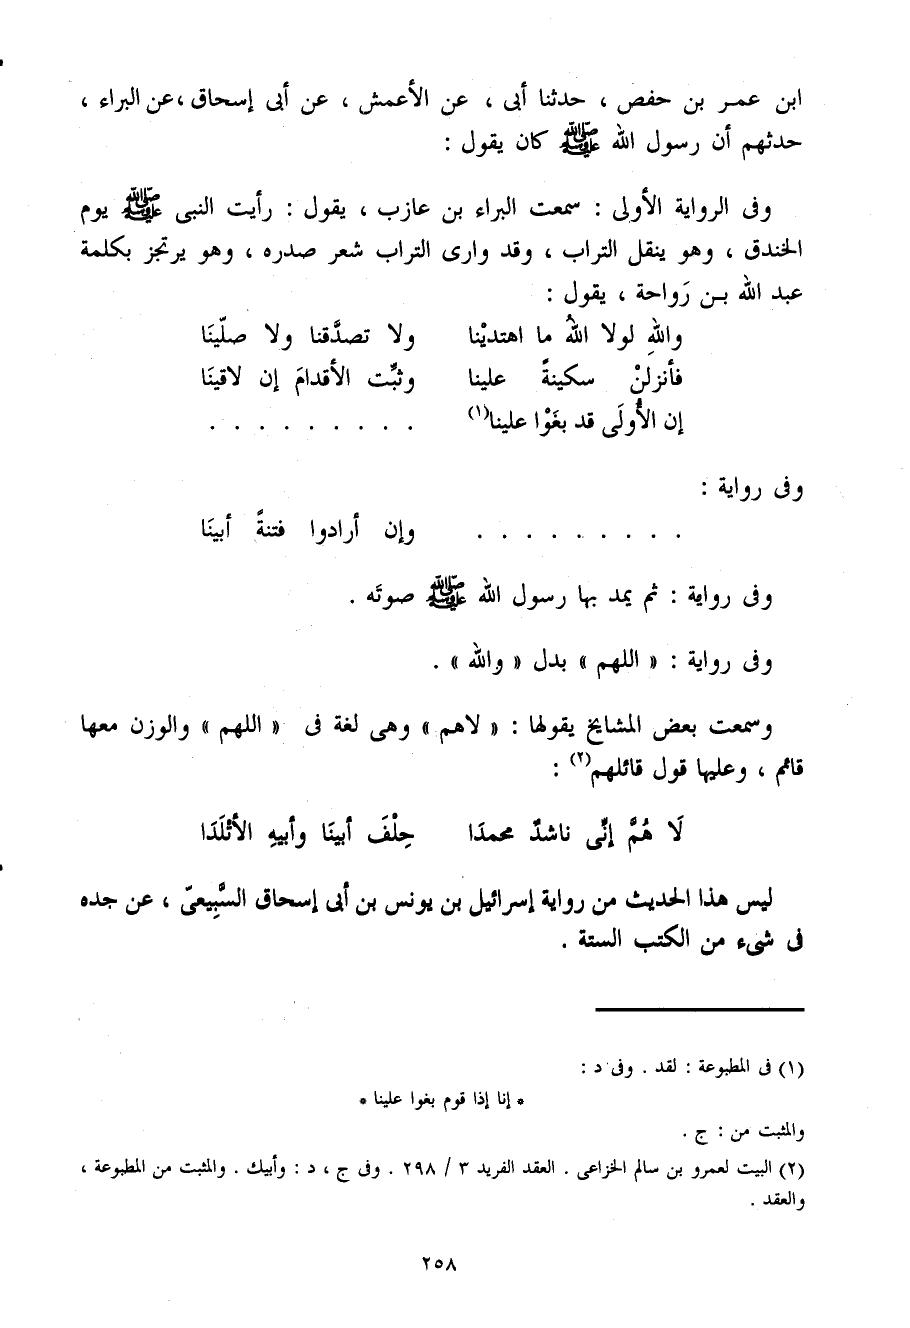 ابن عمر بن حفص ، حدثنا أبى ، عن الأعمش ، عن أبى إسحاق ،عن البراء ،
حدثهم أن رسول الله ﷺ كان يقول :
وفى الرواية الأولى : سمعت البراء بن عازب ، يقول : رأيت النبى ﷺ يوم
الخندق ، وهو ينقل التراب ، وقد وارى التراب شعر صدره ، وهو يرتجز بكلمة
عبد الله بن رَواحة ، يقول :
واللهِ لولا اللهُ ما اهتديْنا ولا تصدَّقنا ولا صلّينَا
فأنزلنْ سكينةً علينا وثبِّت الأقدامَ إن لاقينَا
إن الأُولَى قد بغَوْا علينا(١) . . . . . . . . .
وفى رواية :
. . . . . . . . . وإن أرادوا فتنةً أبينَا
وفى رواية : ثم يمد بها رسول الله ﷺ صوتَه .
وفى رواية : « اللهم » بدل « والله » .
وسمعت بعض المشايخ يقولها : « لاهم » وهى لغة فى « اللهم » والوزن معها
قائم ، وعليها قول قائلهم(٢) :
لَا هُمَّ إنِّى ناشدٌ محمدَا حِلْفَ أبينَا وأبيهِ الأتْلَدَا
ليس هذا الحديث من رواية إسرائيل بن يونس بن أبى إسحاق السَّبِيعىّ ، عن جده
فى شىء من الكتب الستة .
(١) فى المطبوعة : لقد . وفى د :
* إنا إذا قوم بغوا علينا *
والمثبت من : ج .
(٢) البيت لعمرو بن سالم الخزاعى . العقد الفريد ٣ / ٢٩٨ . وفى ج ، د : وأبيك . والمثبت من المطبوعة ،
والعقد .
٢٥٨